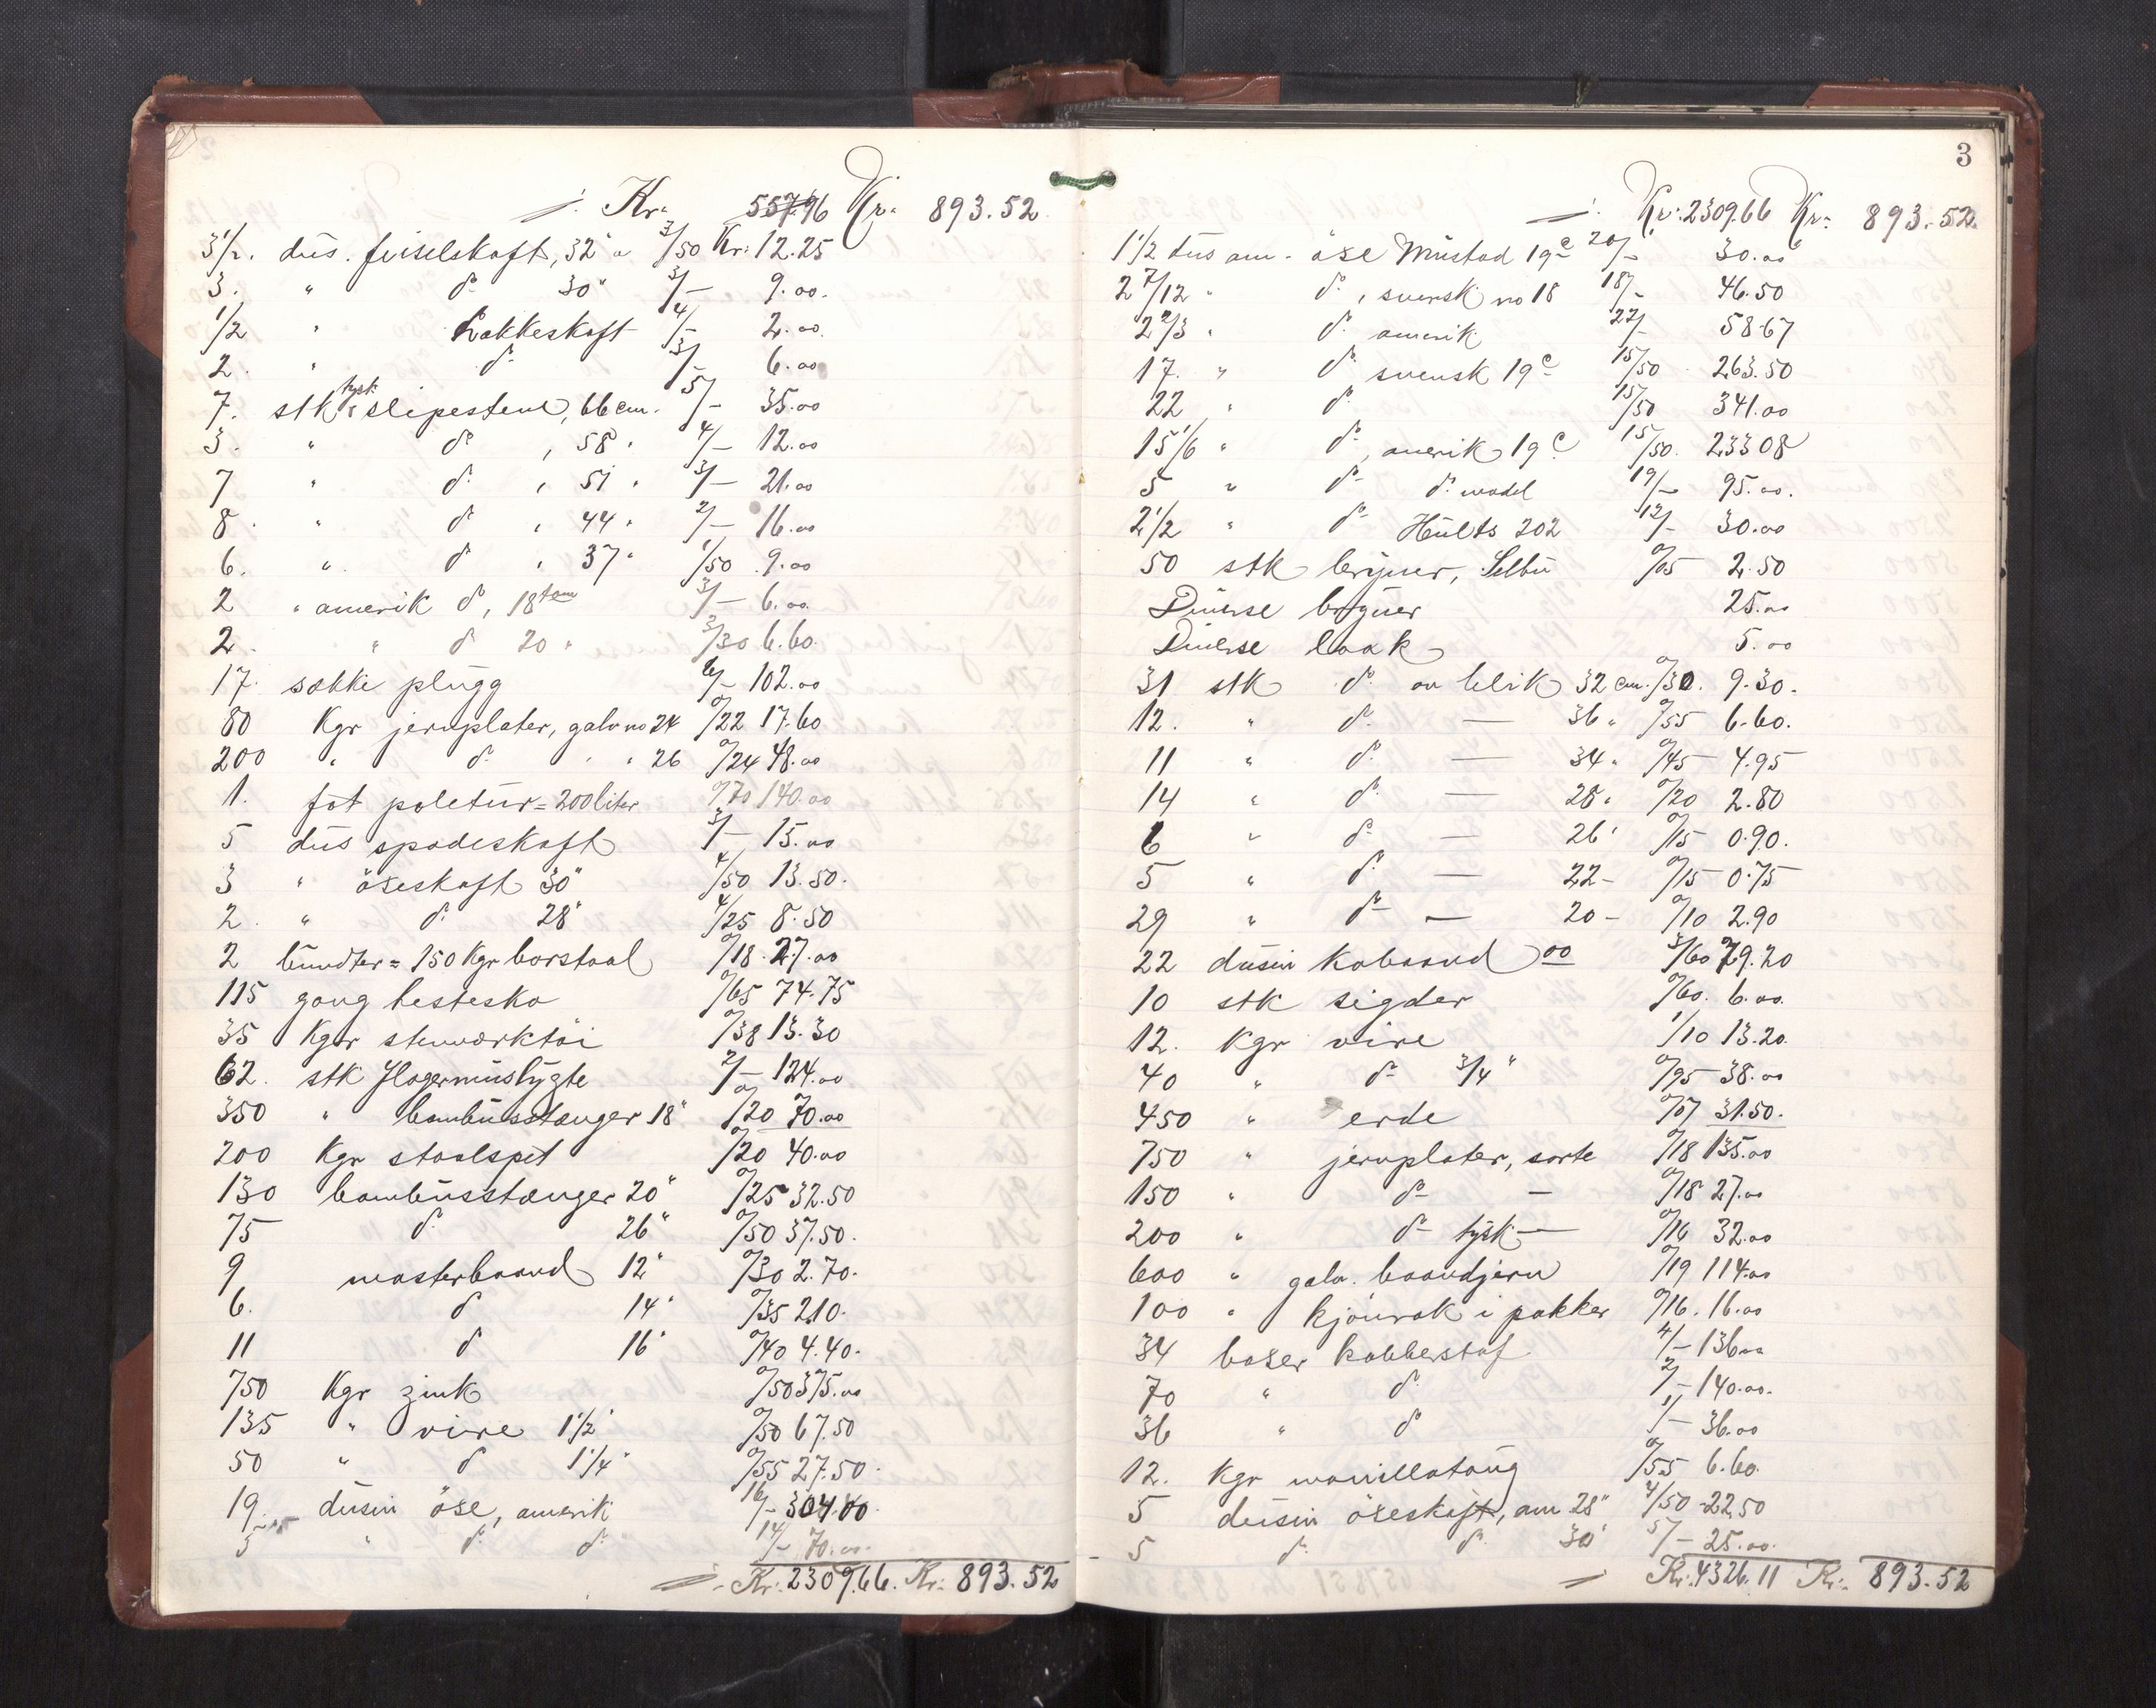 Kr. 557.96 Kr. 893.52
3 1/2. dus. feiselskaft, 32" a 3/50 Kr. 12.25
3. " do 30" 3/- 9.00.
1/2 " Hakkeskaft 4/- 2.00.
2. " do 3/- 6.00
7. stk tysk slipestene, 66 cm. 5/- 35.00
3. " do , 58 " 4/- 12.00
7 " do , 51 " 3/- 21.00
8. " do , 44 " 2/- 16.00
6. " do , 37 " 1/50 9.00
2 " amerik do, 18 tom 3/- 6.00.
2. " do 20 " 3/30 6.60.
17. sække plugg 6/- 102.00
80 Kgr jernplater, galv no 24 0/22 17.60
200 " do " " 26 0/24 48.00
1. fat poletur = 200 liter 0/70 140.00
5 dus spadeskaft 3/- 15.00
3 " økseskaft 30" 4/50 13.50.
2. " do 28" 4/25 8.50
2 bundter = 150 Kgr borstaal 0/18 27.00
115 gang hestesko 0/65 74.75
35 Kgr stenværktöi 0/38 13.30
62. stk Flagermuslygte 2/- 124.00
350 " bambusstænger 18" 0/20 70.00
200 Kgr staalspet 0/20 40.00
130 bambusstænger 20" 0/25 32.50
75 do 26" 0/50 37.50.
9 masterbaand 12" 0/30 2.70.
6. do 14" 0/35 2.10.
11 do 16" 0/40 4.40.
750 Kgr zink 0/50 375.00
135 " vire 1 1/2" 0/50 67.50
50 " do 1 1/4" 0/55 27.50.
19. dusin öxe, amerik 16/- 304.00.
5 " do do 14/- 70.00.
Kr. 2309.66. Kr. 893.52
3
Kr. 2309.66 Kr. 893.52.
1 1/2 dus am. öxe Mustad 19c 20/- 30.00
2 7/12 " do, svensk no 18 18/- 46.50
2 2/3 " do amerik 22/- 58.67
17. " do svensk 19c 15/50 263.50
22 " do 15/50 341.00
15 1/6 " do, amerik 19c 15/50. 233 08
5 " do do model 19/- 95.00.
2 1/2 " do Hults 202 12/- 30.00
50 stk bryner, Selbu 0/05 2.50
Diverse bryner 25.00
Diverse laak 5.00
31 stk do av blik 32 cm. 0/30. 9.30.
12. " do — 36 " 0/55 6.60.
11 " do — 34 " 0/45 4.95
14 " do — 28 " 0/20 2.80
6 " do — 26 ' 0/15 0.90.
5 " do — 22 - 0/15 0.75
29 " do — 20 - 0/10 2.90
22 dusin kobaand 00 3/60 79.20
10 stk sigder 0/60. 6.00.
12. Kgr vire 1/10 13.20.
40 " do 3/4" 0/95 38.00
450 " erde 0/07 31.50.
750 " jernplater, sorte 0/18 135.00
150 " do — 0/18 27.00
200 " do tysk — 0/16 32.00
600 " galv. baandjern 0/19 114.00
100 " kjönrök i pakker 0/16. 16.00
34 baser kobberstof 4/- 136.00
70 " do 2/- 140.00.
36 " do 1/- 36.00
12. Kgr manillataug 0/55 6.60.
5 dusin öxeskaft, am 28" 4/50 22.50
5 do do 30" 5/- 25.00.
Kr. 4326.11 Kr. 893.52